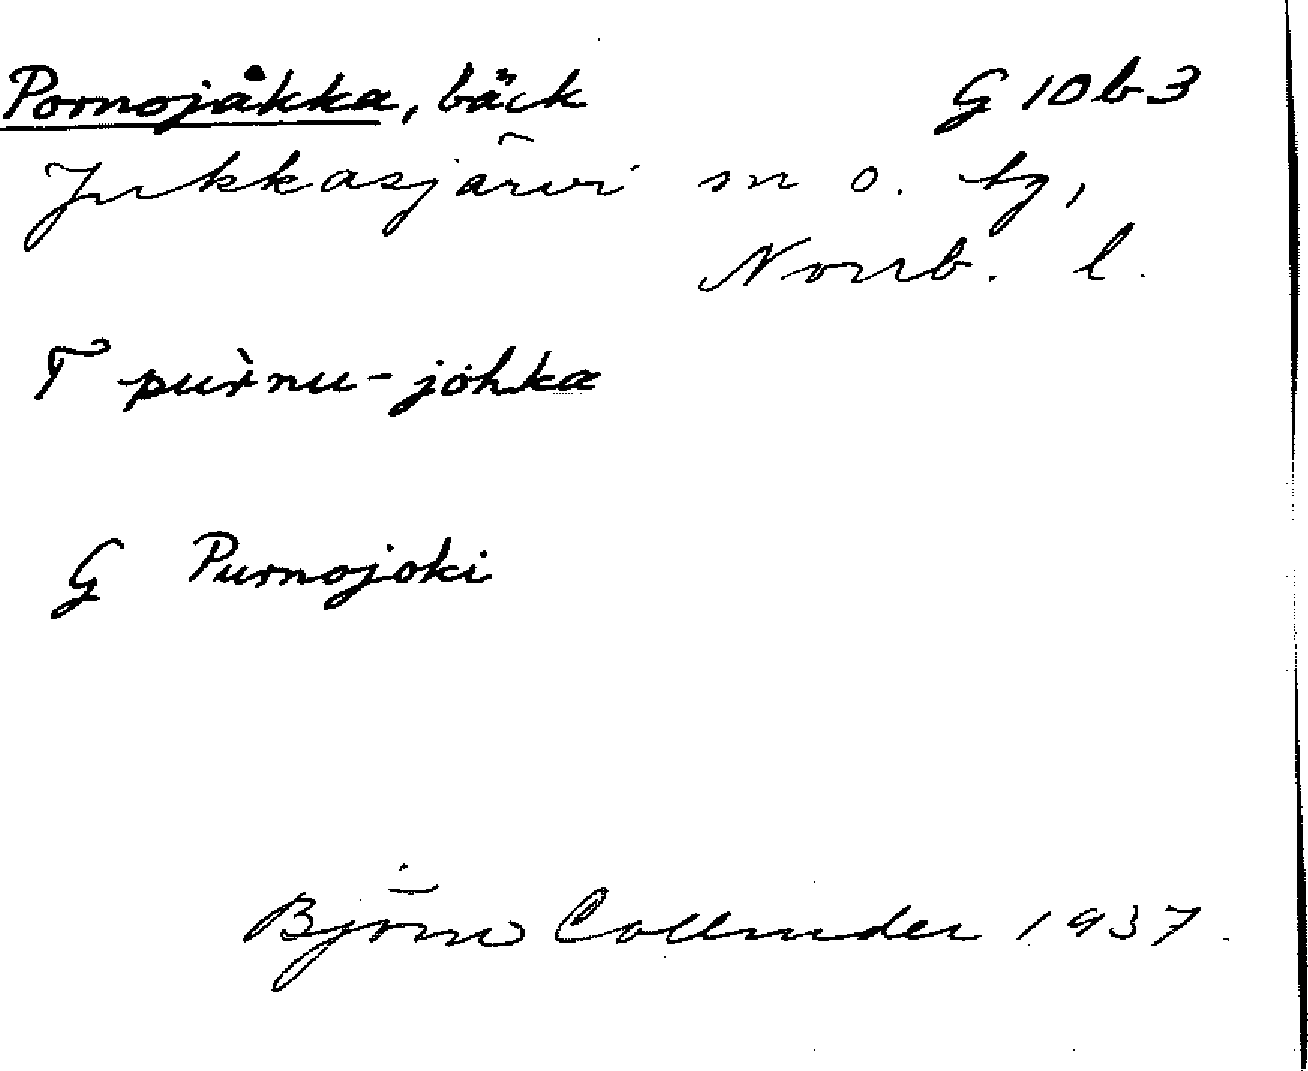 Pornojåkka, bäck G 10 b 3
Jukkasjärvi sn o. tg,
Norrb. l.
T pur̀nu-jòhka
G Purnojoki
Björn Collinder 1937.